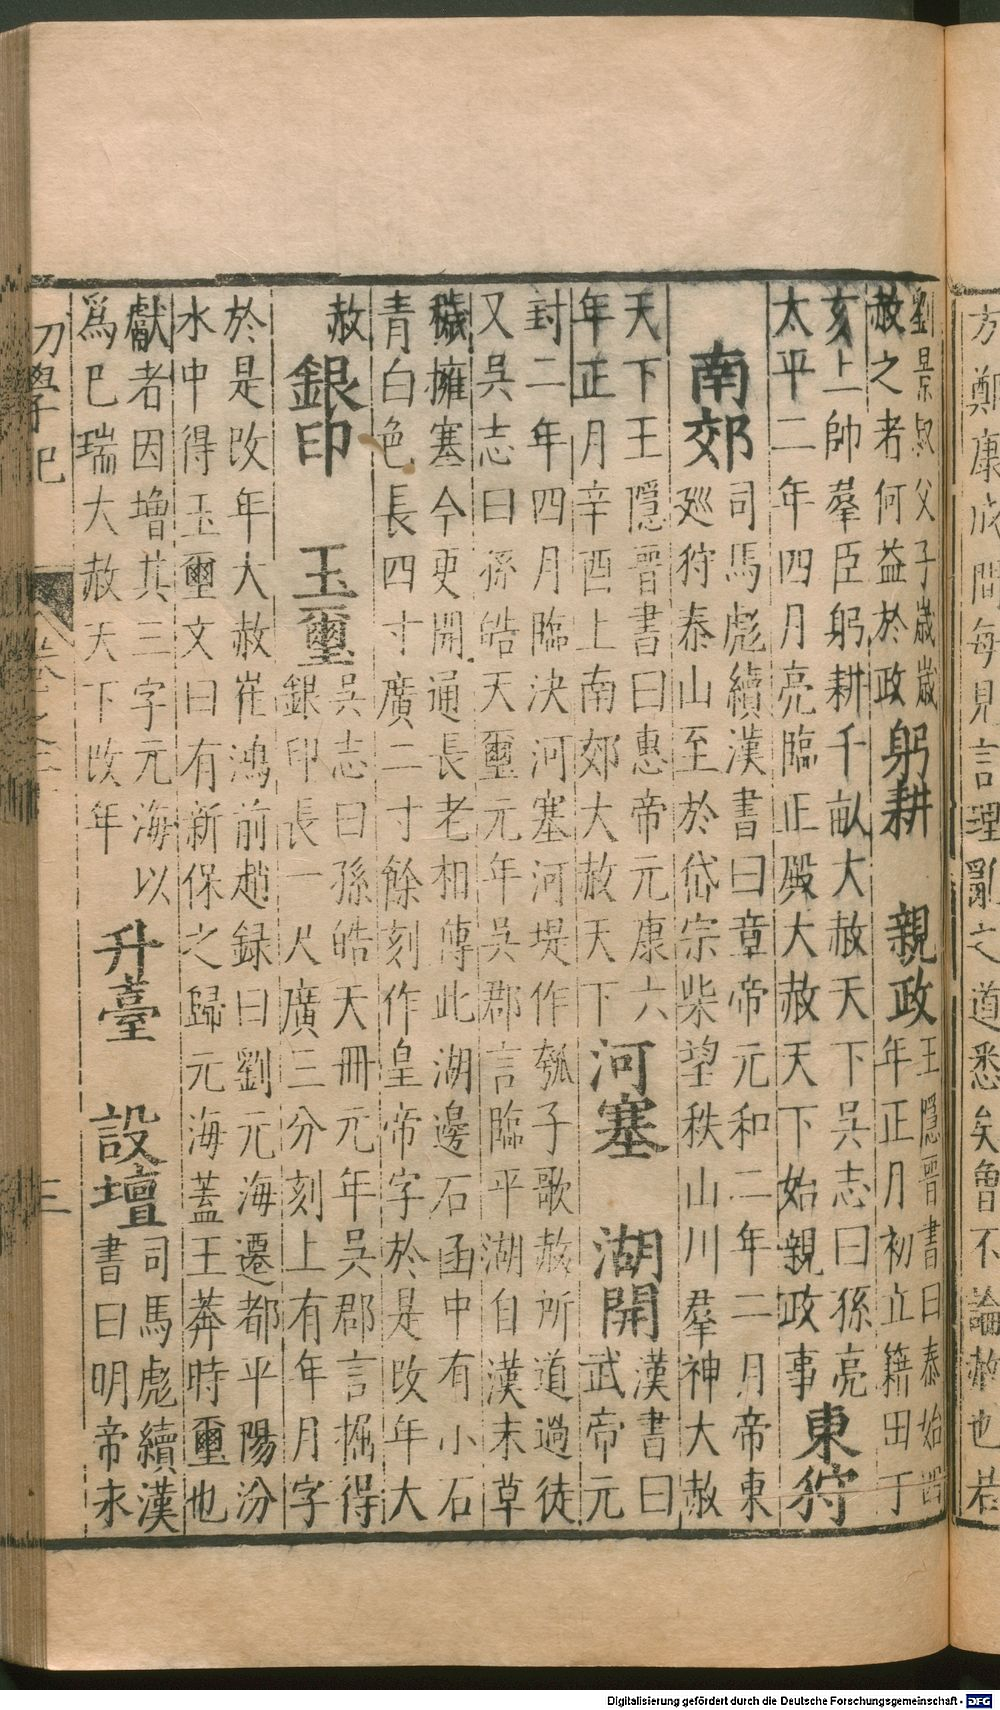 方鄭康成間每見言理亂之道悉矣魯不論赦也若
劉景叔父子歳歳
赦之者何益於政
躬耕　親政
王隱晉書曰泰始四
年正月初立籍田于
亥上帥羣臣躬耕千畝大赦天下吳志曰孫亮
太平二年四月亮臨正殿大赦天下始親政事
東狩
南郊
司馬彪續漢書曰章帝元和二年二月帝東
廵狩泰山至於岱宗柴望秩山川羣神大赦
天下王隱晉書曰惠帝元康六
年正月辛酉上南郊大赦天下
河塞　湖開
漢書曰
武帝元
封二年四月臨決河塞河堤作瓠子歌赦所道過徒
又吳志曰孫皓天璽元年吳郡言臨平湖自漢末草
穢擁塞今更開通長老相傳此湖邊石函中有小石
青白色長四寸廣二寸餘刻作皇帝字於是改年大
赦
銀印　玉璽
吳志曰孫皓天冊元年吳郡言掘得
銀印長一尺廣三分刻上有年月字
於是改年大赦崔鴻前趙録曰劉元海遷都平陽汾
水中得玉璽文曰有新保之歸元海蓋王莽時璽也
獻者因增其三字元海以
爲已瑞大赦天下改年
升臺　設壇
司馬彪續漢
書曰明帝永
初學記
三
Digitalisierung gefördert durch die Deutsche Forschungsgemeinschaft - DFG